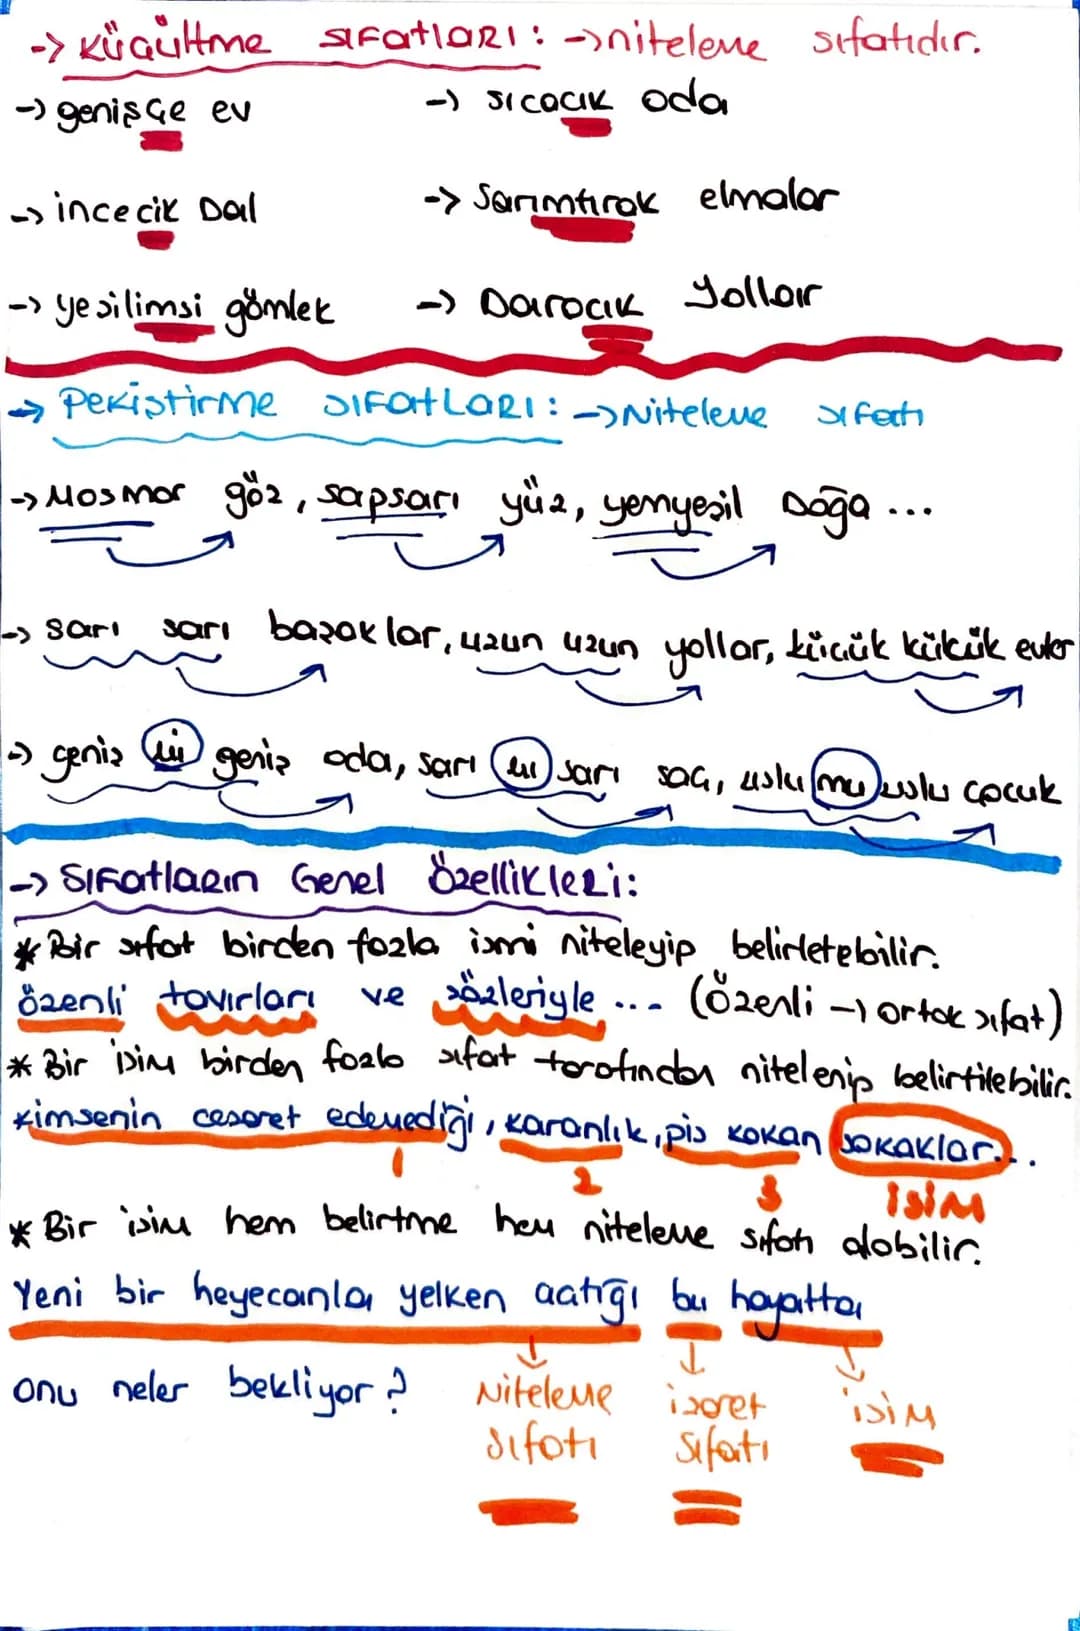 -> Küçültme sıfatları: -> niteleme sıfatıdır.
-> genişçe ev -> sıcacık oda
-> incecik Dal -> Sarımtırak elmalar
-> yeşilimsi gömlek -> Daracık Yollar
-> Pekiştirme sıfatları: -> Niteleme sıfatı
-> Mosmor göz, sapsarı yüz, yemyeşil Doğa ...
-> sarı sarı başaklar, uzun uzun yollar, küçük kükük evler
-> geniş mi geniş oda, sarı mı sarı saç, uslu mu uslu çocuk
-> Sıfatların Genel Özellikleri:
* Bir sıfat birden fazla ismi niteleyip belirletebilir.
özenli tavırları ve sözleriyle ... (Özenli -> ortak sıfat)
* Bir isim birden fazla sıfat tarafından nitelenip belirtilebilir.
Kimsenin cesaret edemediği, karanlık, pis kokan sokaklar...
1 2 3 isim
* Bir isim hem belirtme hem niteleme sıfatı alabilir.
Yeni bir heyecanla yelken açtığı bu hayatta
onu neler bekliyor?
Niteleme işaret isim
sıfatı sıfatı